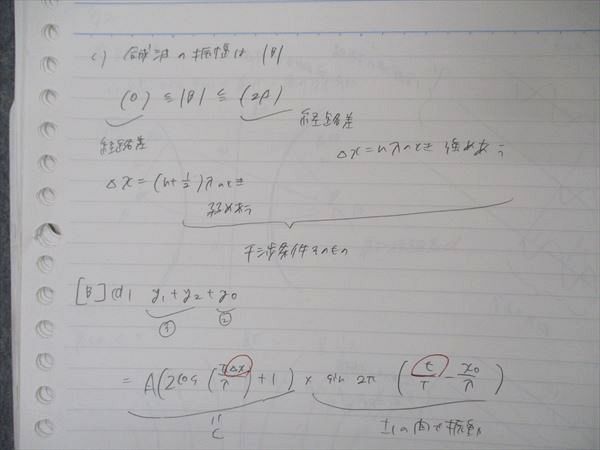 c) 合成波の振幅は |B|
(0) ≦ |B| ≦ (2A)
経路差
経路差
Δx = nλのとき 強め合う
Δx = (n+1/2)λのとき
弱め合う
干渉条件そのもの
[B] (d) y₁+y₂+y₀
① ②
= A(2cos(πΔx/λ)+1) × sin 2π(t/T - x₀/λ)
" C
±1の間で振動